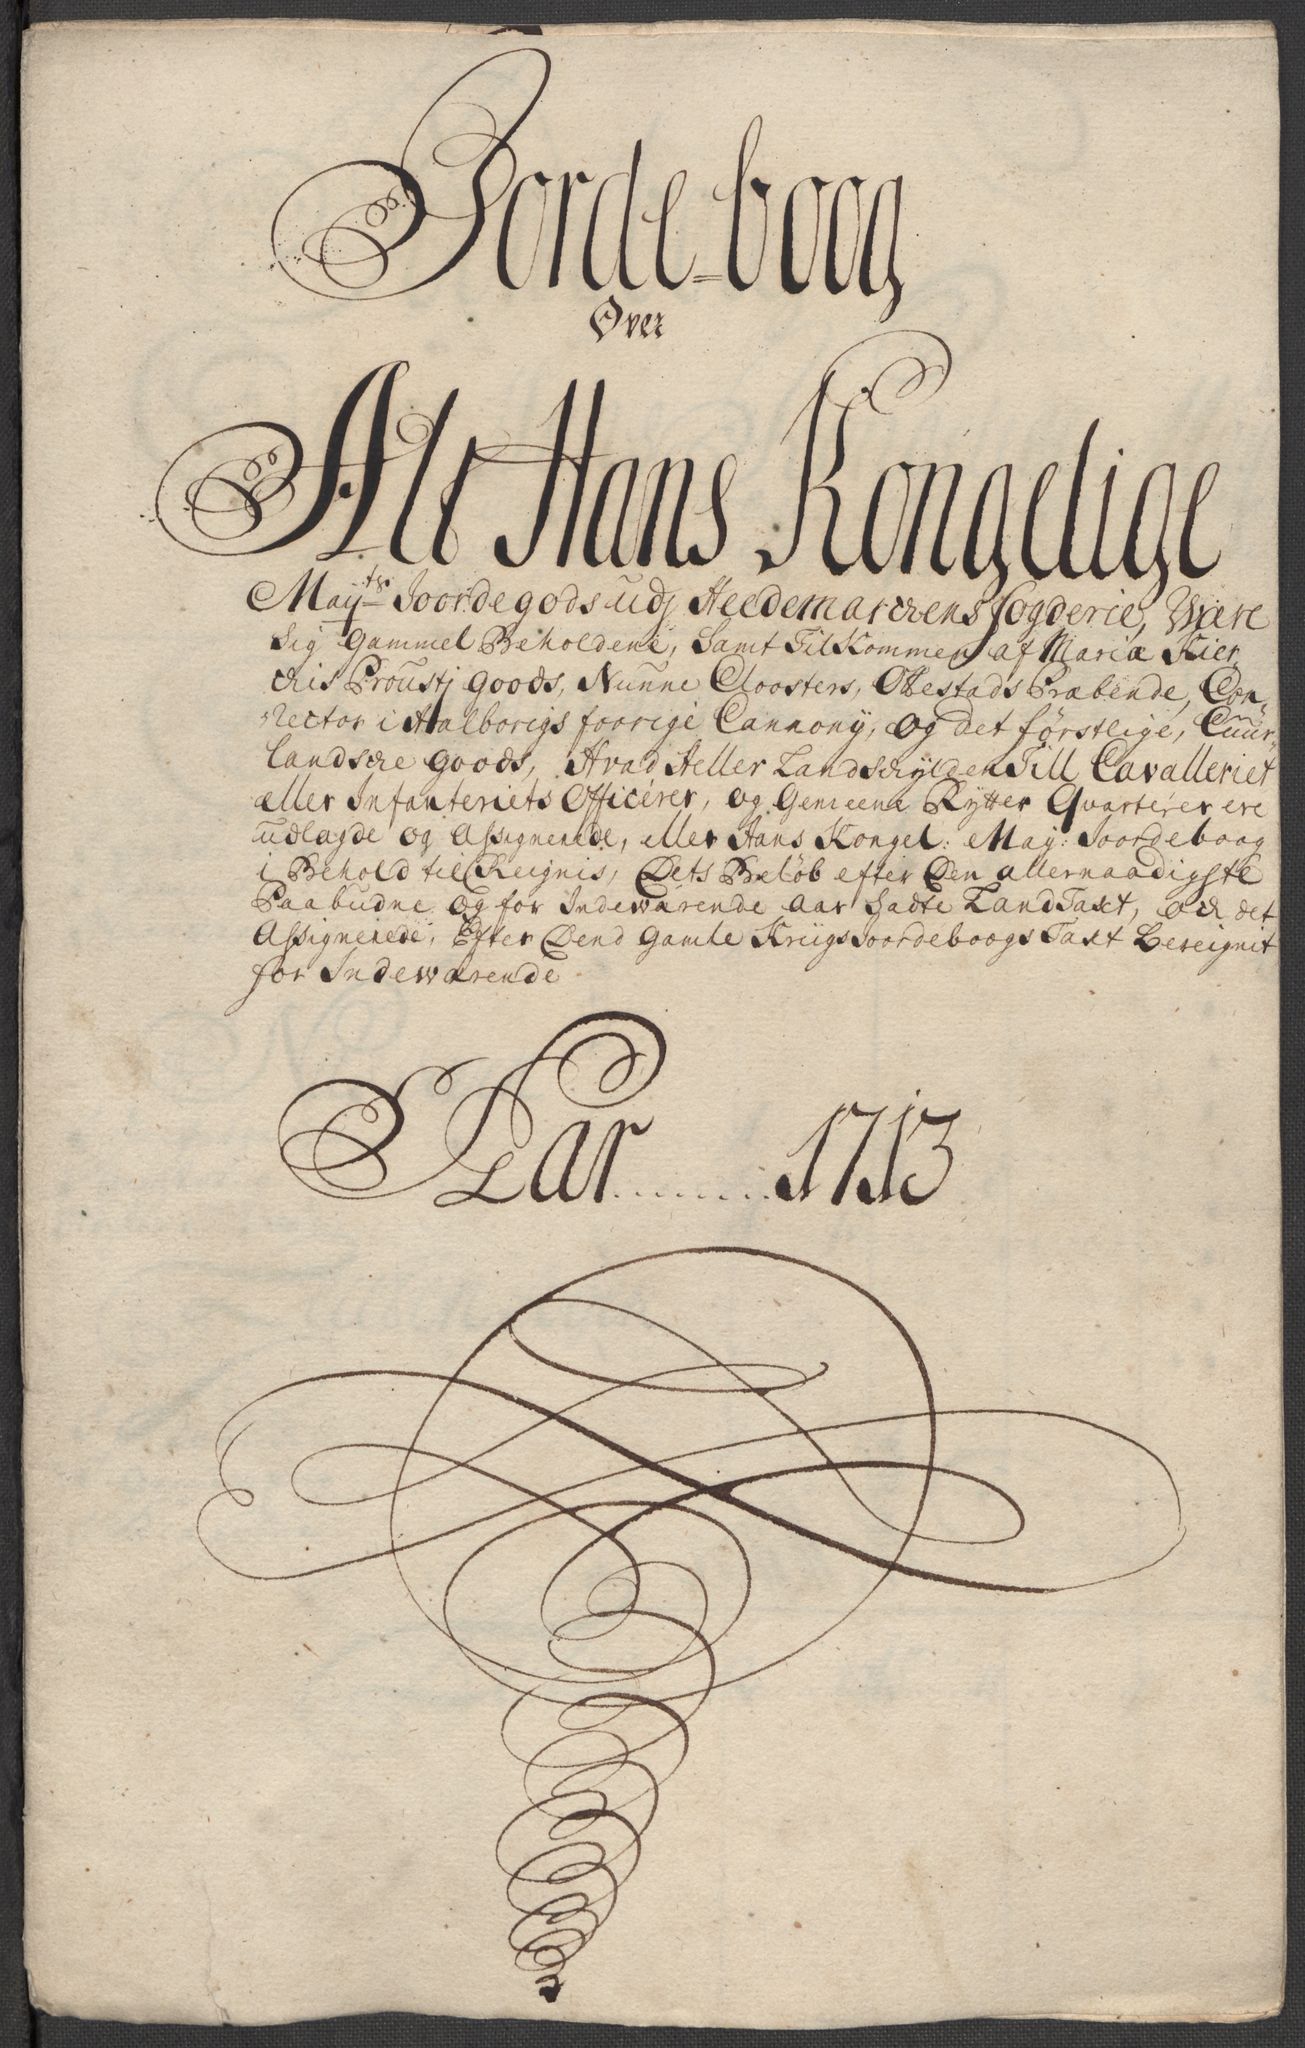 Jorde-boog
Over
Alt Hans Kongelige
Mayts Joordegods udj Heedemarckens fogderie, Være
Sig Gammel Beholdene, Samt TilKommen af Mariæ Kier
ckis Proustj Goods, Nunne Cloosters, Præbende, Con-
rector i Aalborigs foorige Cannonij, og det förstlige, Cuur-
landsche Goods, Hvad Heller Landschylden Till Cavalleriet
æller Infanteriets Officerer, og Gemeene Rytter Quarterer ere
udlagde og Assignerede, eller Hans Kongel: May: Joordeboog
i Behold til Reignis, Dets Beløb efter Den allernaadigste
Paabudne og for Indeværende aar Sadte LandTaxt, och det
Assignerede, Efter Dend Gamle KriigsJoordeboogs Taxt Bereignit
for Indeværende
Aar 1713